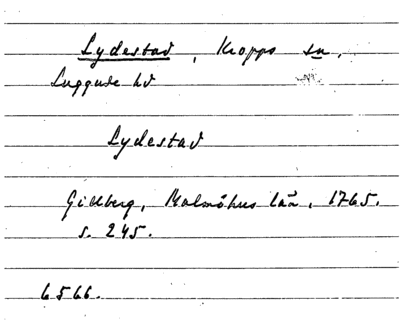 Lydestad, Kropps sn.
Luggude hd
Lydestad
Gillberg, Malmöhus län, 1765.
s. 245.
6566.